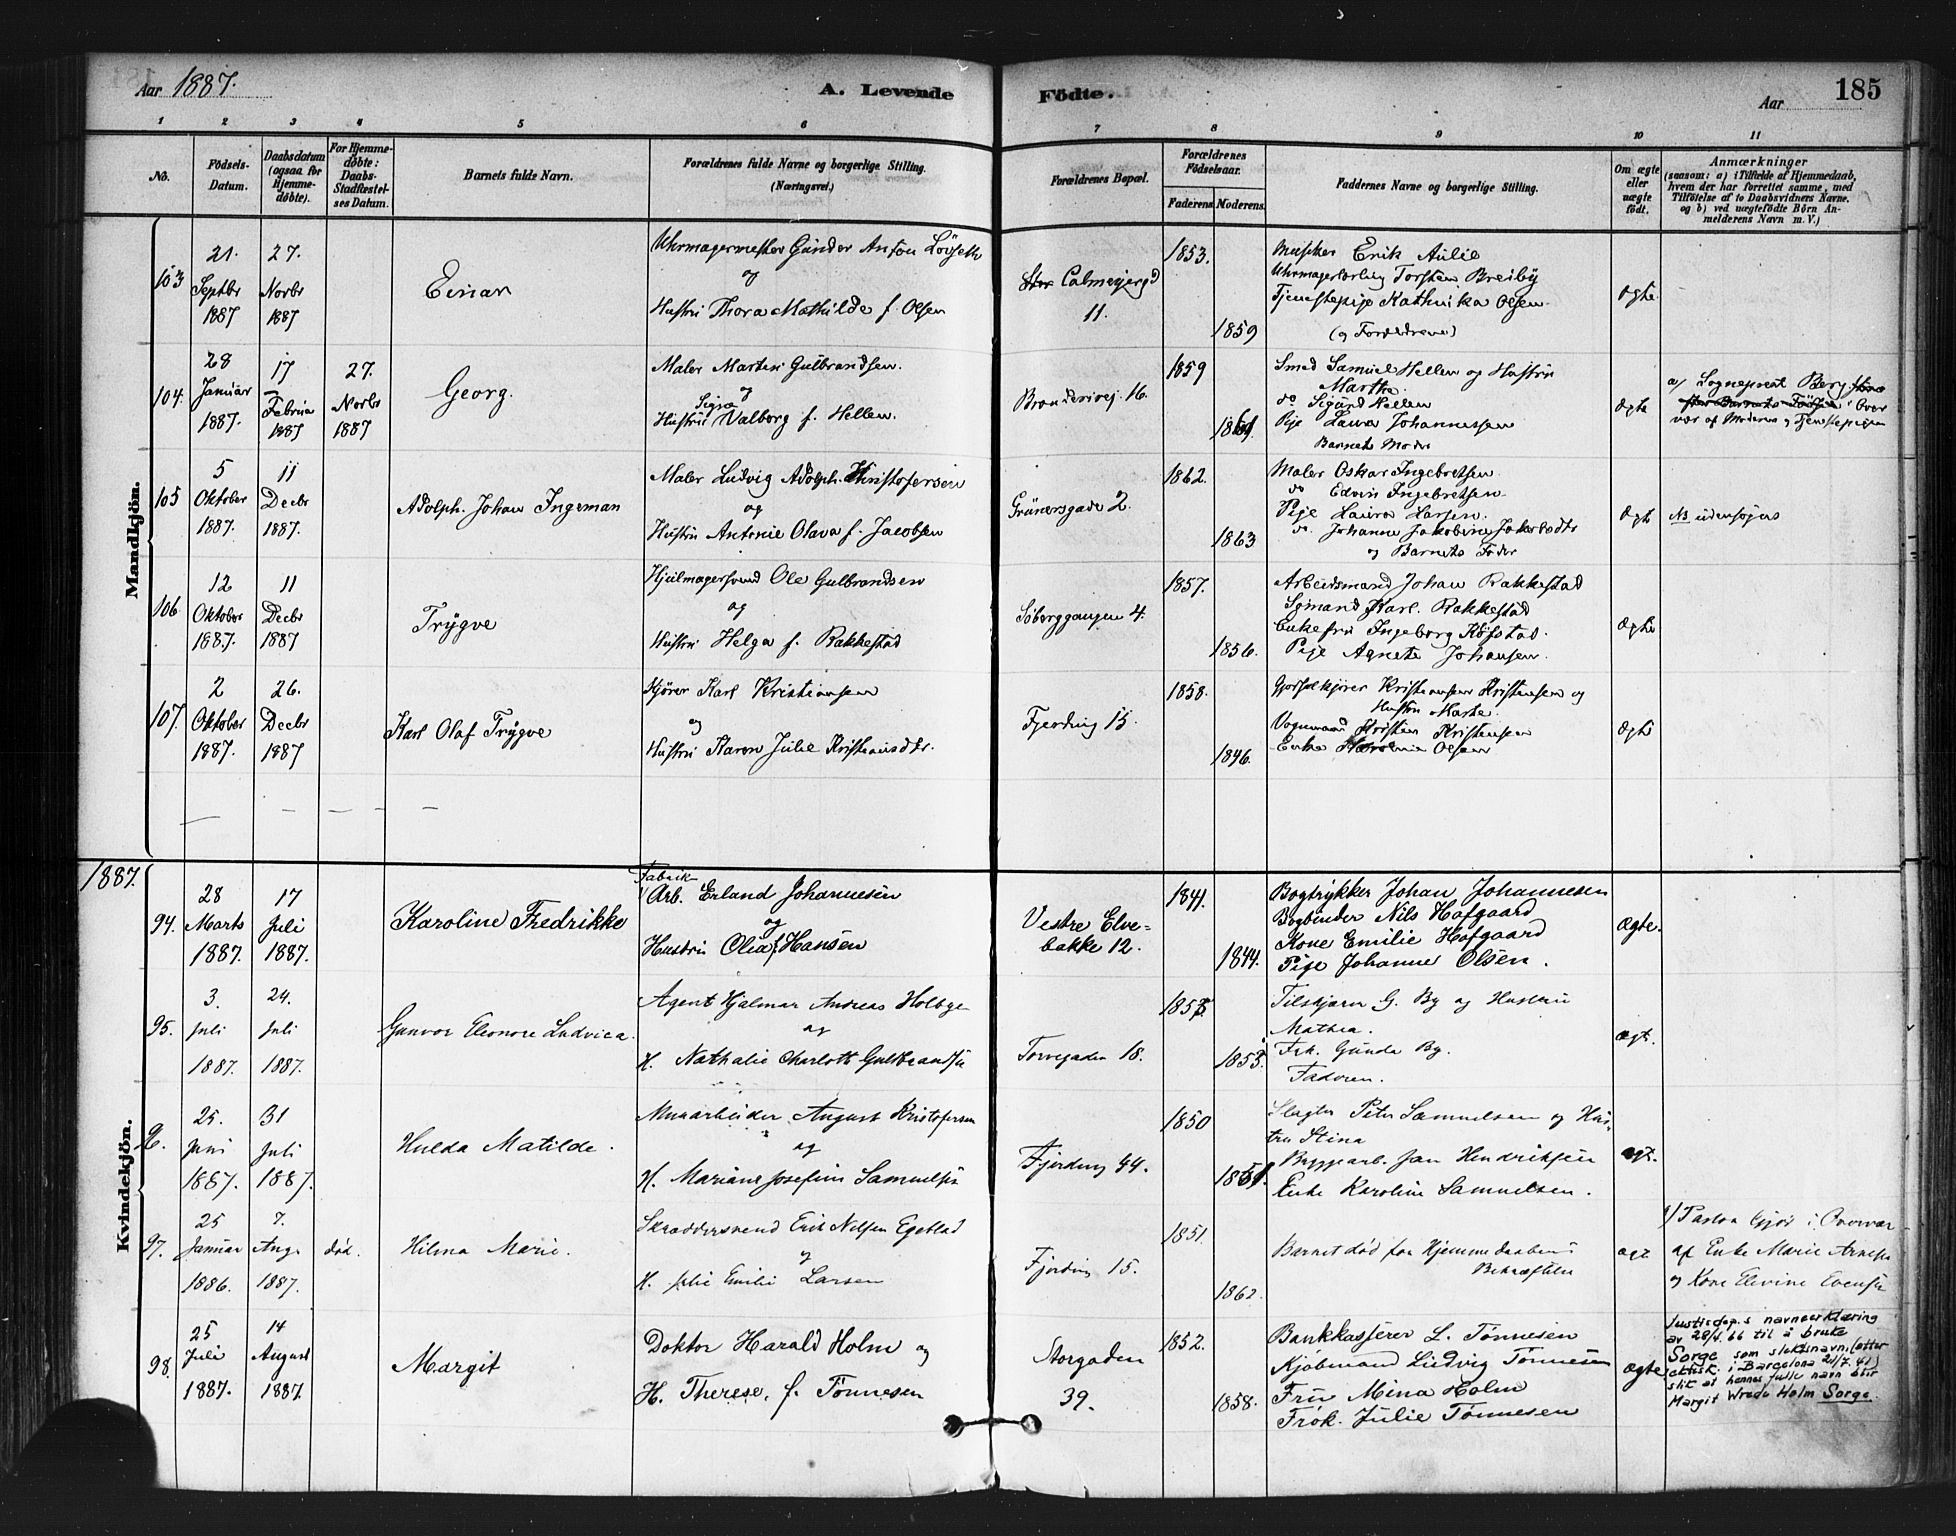 Aar 1887.
A. Levende Födte.
Aar
185
1 2 3 4 5 6 7 8 9 10 11
No.
Födsels-
Datum.
Daabsdatum
(ogsaa for
Hjemme-
döbte).
For Hjemme-
döbte:
Daabs-
Stadfæstel-
ses Datum.
Barnets fulde Navn.
Forældrenes fulde Navne og borgerlige Stilling.
(Næringsvei.)
Forældrenes Bopæl.
Forældrenes
Födselsaar.
Faderens. Moderens.
Faddernes Navne og borgerlige Stilling.
Om ægte
eller
uægte
födt.
Anmærkninger
(saasom: a) i Tilfælde af Hjemmedaab,
hvem der har forrettet samme, med
Tilföielse af to Daabsvidners Navne.
og b) ved uægtefödte Börn An-
melderens Navn m. V.)
Mandkjön.
103
21.
Septbr
1887
27.
Novbr
1887
Einar
Uhrmagermester Gunder Anton Lövseth
og
Hustru Thora Mathilde f. Olsen
Calmeyergd
11.
1853.
1859
Erik Aulie
Torsten Breiby
Tjenestepige Kathrika Olsen
(og Forældrene)
ægte
104.
28
Januar
1887.
17
Februa
1887
27.
Novbr
1887
Georg.
Maler Martin Gulbrandsen.
og
Signe
Hustru Valborg f. Hellen.
Brenderivej. 16.
1859
1861.
Smed Samuel Hellen og Hustru
Martha.
do Sigurd Hellen
Pige Laura Johannessen
Barnets Moder
ægte
a/ Sogneprest Berg
i Over
vær af Moderen og Tjenestepigen
105
5
Oktober
1887.
11
Decbr
1887.
Adolph. Johan Ingeman
Maler Ludvig Adolph. Kristofersen
og
Hustru Antonie Olava f. Jacobsen
Grünersgade 2.
1862.
1863
Maler Oskar Ingebretsen
do Edvin Ingebretsen
Pige Laura Larsen.
do. Johanne Jakobine Jakobsdtr
og Barnets Fader
ægte
NB udensogns
106
12
Oktober
1887.
11
Decbr
1887
Trygve
Hjulmagersvend Ole Gulbrandsen
og
Hustru Helga f. Rakkestad
Söberggangen 4.
1857.
1856.
Arbeidsmand Johan Rakkestad
Sömand Karl. Rakkestad
Enkefru Ingeborg Kofstad.
Pige Agnete Johansen.
ægte
107.
2
Oktober
1887.
26.
Decbr
1887
Karl Olaf Trygve
Kjörer Karl Kristiansen
og
Hustru Karen Julie Kristiansdtr.
Fjerding 15.
1858.
1846.
Kristensen og
Hustru Marte.
Vognmand Kristen Kristensen
Enke Olsen
ægte
1887.
Kvindekjön.
94.
28
Marts
1887.
17
Juli
1887.
Karoline Fredrikke
Fabrik-
Arb. Erland Johannesen
og
Hustru Olia f. Hansen
Vestre Elve-
bakke 12.
1841.
1844.
Bogtrykker Johan Johannesen
Bogbinder Nils Hofgaard
Kone Emilie Hofgaard
Pige Johanne Olsen.
Ægte.
95.
3.
Juli
1887.
24.
Juli
1887.
Gunvor Eleonore Ludvica.
Agent Hjalmar Andreas Holbye
og
H. Nathalie Charlotte Gulbrandsen
Torvegaden 18.
1853.
Tilskjærer G. By og Hustru
Mathea.
Frk. Gunda By.
Faderen.
ægt.
96.
25.
Juni
1887.
31
Juli
1887.
Hulda Matilde.
Murarbeider August Kristofersen
og
H. Mariane Josefine Samuelsen
Fjerding 44.
1850
1851.
Slagter Peter Samuelsen og Hus-
tru Stina
Byggearb. Jan Hendriksen
Enke Karoline Samuelsen.
ægt.
97.
25
Januar
1886.
7.
Aug.
1887.
död.
Hilma Marie.
Skræddersvend Erik Nilsen Egestad
og
H. Julie Emilie Larsen
Fjerding 15.
1851.
1862.
Barnet död för Hjemmedaabens
Bekræftelse
ægt
Pastor Gjör i Overvær
af Enke Marie Arnesen
og Kone Elevine Evensen
98.
25
Juli
1887.
14
August
1887.
Margit
Doktor Harald Holm og
H. Therese. f. Tönnesen
Storgaden
39.
1852.
1858.
Bankkasserer L. Tönnesen
Kjöbmand Ludvig Tönnesen
Fru Mina Holm
Frök. Julie Tönnesen
Ægte
Justisdep.s navneerklæring
av 28/4.66 til å bruke
Sorge som slektsnavn, (etter
ektesk. i Barcelona 21/7.41)
slik at hennes fulle navn blir
Margit Wrede Holm Sorge.